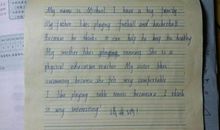 My name is Michael. I have a big family.
My father likes playing football and basketball
because he thinks it can help he keep the healthy
My mother likes playing running. She is a
physical education teacher. My sister likes
swimming because she felt very comfortable
I like playing table tennis because I think
is very interesting!